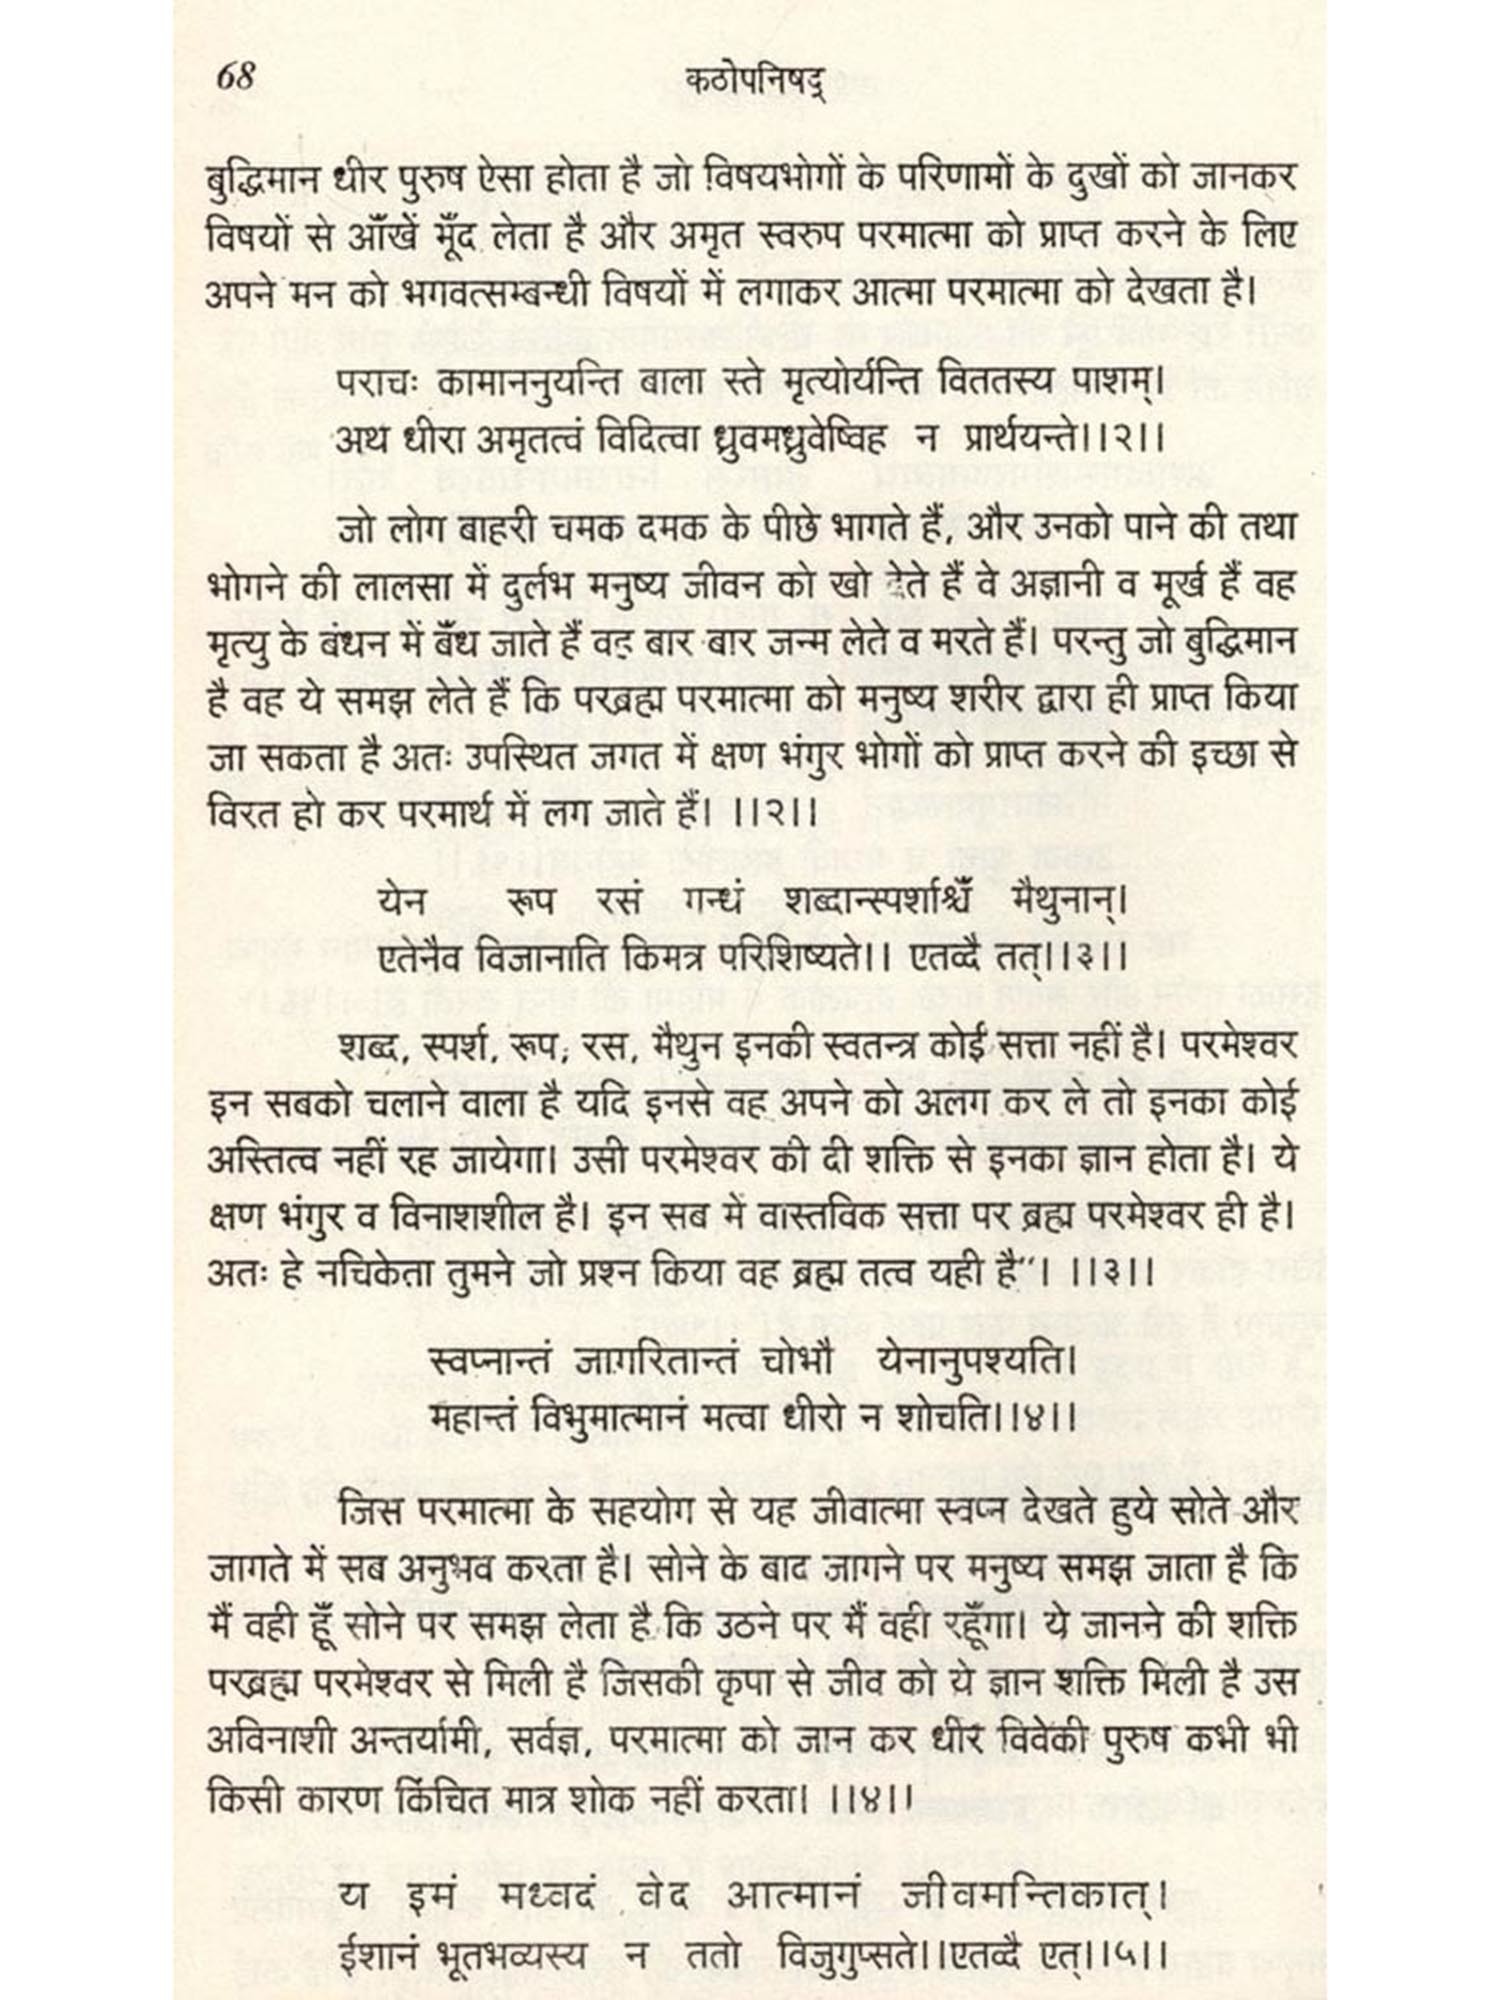 68
कठोपनिषद्
बुद्धिमान धीर पुरुष ऐसा होता है जो विषयभोगों के परिणामों के दुखों को जानकर
विषयों से आँखें मूँद लेता है और अमृत स्वरुप परमात्मा को प्राप्त करने के लिए
अपने मन को भगवत्सम्बन्धी विषयों में लगाकर आत्मा परमात्मा को देखता है।
पराचः कामाननुयन्ति बाला स्ते मृत्योर्यन्ति विततस्य पाशम्।
अथ धीरा अमृतत्वं विदित्वा ध्रुवमध्रुवेष्विह न प्रार्थयन्ते।।२।।
जो लोग बाहरी चमक दमक के पीछे भागते हैं, और उनको पाने की तथा
भोगने की लालसा में दुर्लभ मनुष्य जीवन को खो देते हैं वे अज्ञानी व मूर्ख हैं वह
मृत्यु के बंधन में बँध जाते हैं वह बार बार जन्म लेते व मरते हैं। परन्तु जो बुद्धिमान
है वह ये समझ लेते हैं कि परब्रह्म परमात्मा को मनुष्य शरीर द्वारा ही प्राप्त किया
जा सकता है अतः उपस्थित जगत में क्षण भंगुर भोगों को प्राप्त करने की इच्छा से
विरत हो कर परमार्थ में लग जाते हैं। ।।२।।
येन रूप रसं गन्धं शब्दान्स्पर्शाश्चँ मैथुनान्।
एतेनैव विजानाति किमत्र परिशिष्यते।। एतव्दै तत्।।३।।
शब्द, स्पर्श, रूप, रस, मैथुन इनकी स्वतन्त्र कोई सत्ता नहीं है। परमेश्वर
इन सबको चलाने वाला है यदि इनसे वह अपने को अलग कर ले तो इनका कोई
अस्तित्व नहीं रह जायेगा। उसी परमेश्वर की दी शक्ति से इनका ज्ञान होता है। ये
क्षण भंगुर व विनाशशील है। इन सब में वास्तविक सत्ता पर ब्रह्म परमेश्वर ही है।
अतः हे नचिकेता तुमने जो प्रश्न किया वह ब्रह्म तत्व यही है"। ।।३।।
स्वप्नान्तं जागरितान्तं चोभौ येनानुपश्यति।
महान्तं विभुमात्मानं मत्वा धीरो न शोचति।।४।।
जिस परमात्मा के सहयोग से यह जीवात्मा स्वप्न देखते हुये सोते और
जागते में सब अनुभव करता है। सोने के बाद जागने पर मनुष्य समझ जाता है कि
मैं वही हूँ सोने पर समझ लेता है कि उठने पर मैं वही रहूँगा। ये जानने की शक्ति
परब्रह्म परमेश्वर से मिली है जिसकी कृपा से जीव को ये ज्ञान शक्ति मिली है उस
अविनाशी अन्तर्यामी, सर्वज्ञ, परमात्मा को जान कर धीर विवेकी पुरुष कभी भी
किसी कारण किंचित मात्र शोक नहीं करता। ।।४।।
य इमं मध्वदं वेद आत्मानं जीवमन्तिकात्।
ईशानं भूतभव्यस्य न ततो विजुगुप्सते।।एतव्दै एत्।।५।।